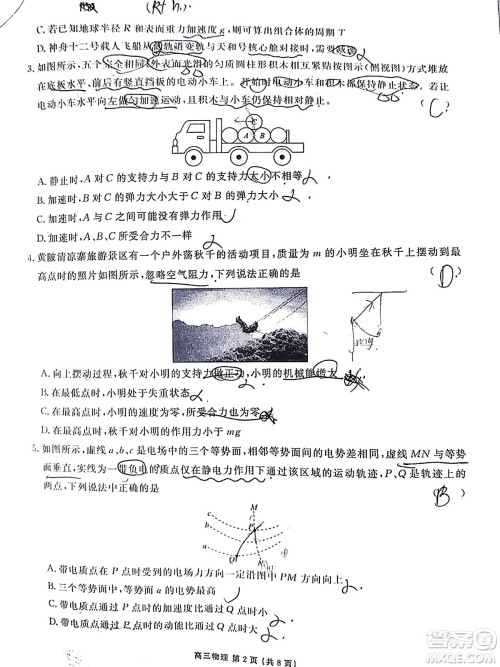 (R+h)
C. 若已知地球半径 R 和表面重力加速度 g, 可以求出组合体的周期 T
D. 神舟十二号载人飞船从低轨道变轨与天和号核心舱对接, 需要减速
3. 如图所示, 五个完全相同、外表面光滑的圆柱形积木相互紧挨按图示(侧视图)方式堆放
在底板水平、前后有竖直挡板的电动小车上。开始时电动小车和积木保持静止状态, 若让
电动小车水平向左做匀加速运动, 且积木与小车仍保持相对静止。
(C)
C
A B
A. 静止时, A 对 C 的支持力与 B 对 C 的支持力大小不相等
B. 加速时, A 对 C 的弹力大小大于 B 对 C 的弹力大小
C. 加速时, A 与 C 之间可能没有弹力作用
D. 加速时, A、B、C 所受合力大小不相等
4. 黄陂清凉寨旅游景区有一个户外荡秋千的活动项目, 质量为 m 的小明坐在秋千上摆动到最
高点时的照片如图所示, 忽略空气阻力, 下列说法正确的是
(D)
mg
A. 向上摆动过程, 秋千对小明的支持力做正功, 小明的机械能增大
B. 在最低点时, 小明处于失重状态
C. 在最高点时, 小明的速度为零, 所受合力也为零
D. 在最高点时, 秋千对小明的作用力小于 mg
5. 如图所示, 虚线 a、b、c 是电场中的三个等势面, 相邻等势面间的电势差相同, 虚线 MN 与等势
面垂直, 实线为一个带负电的质点仅在静电力作用下通过该区域的运动轨迹, P、Q 是轨迹上的
两点, 下列说法中正确的是
B
M
c
P
b
a
Q
N
A. 带电质点在 P 点时受到的电场力方向一定沿图中 PM 方向向上
B. 三个等势面中, 等势面 a 的电势最高
C. 带电质点通过 P 点时的动能比通过 Q 点时大
D. 带电质点通过 P 点时的加速度比通过 Q 点时小
高三物理 第 2 页 (共 8 页)